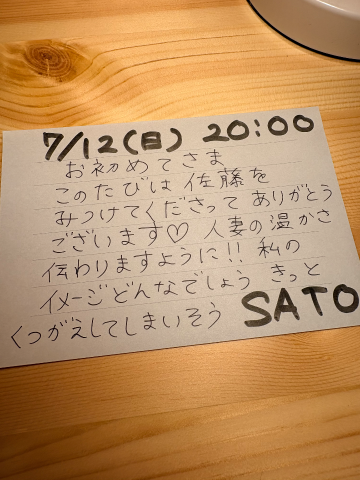 7/12(日) 20:00
お初めてさま
このたびは 佐藤を
みつけてくださって ありがとう
ございます♡ 人妻の温かさ
伝わりますように!! 私の
イメージどんなでしょう きっと
くつがえしてしまいそう SATO